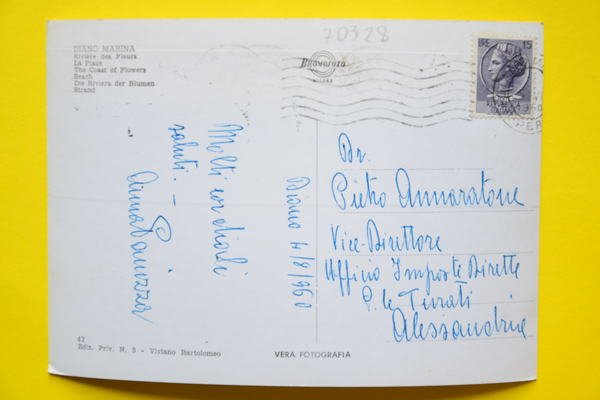 70328
DIANO MARINA
Rivière des Fleurs
La Place
The Coast of Flowers
Beach
Die Riviera der Blumen
Strand
Bromofoto
MILANO
LIRE 15
Molti cordiali
saluti. —
Diano 4/8/960
Dr.
Pietro Annaratone
Vice-Direttore
Ufficio Imposte Dirette
P. le Turati
Alessandria
42
Ediz. Priv. N. 5 - Viviano Bartolomeo
VERA FOTOGRAFIA